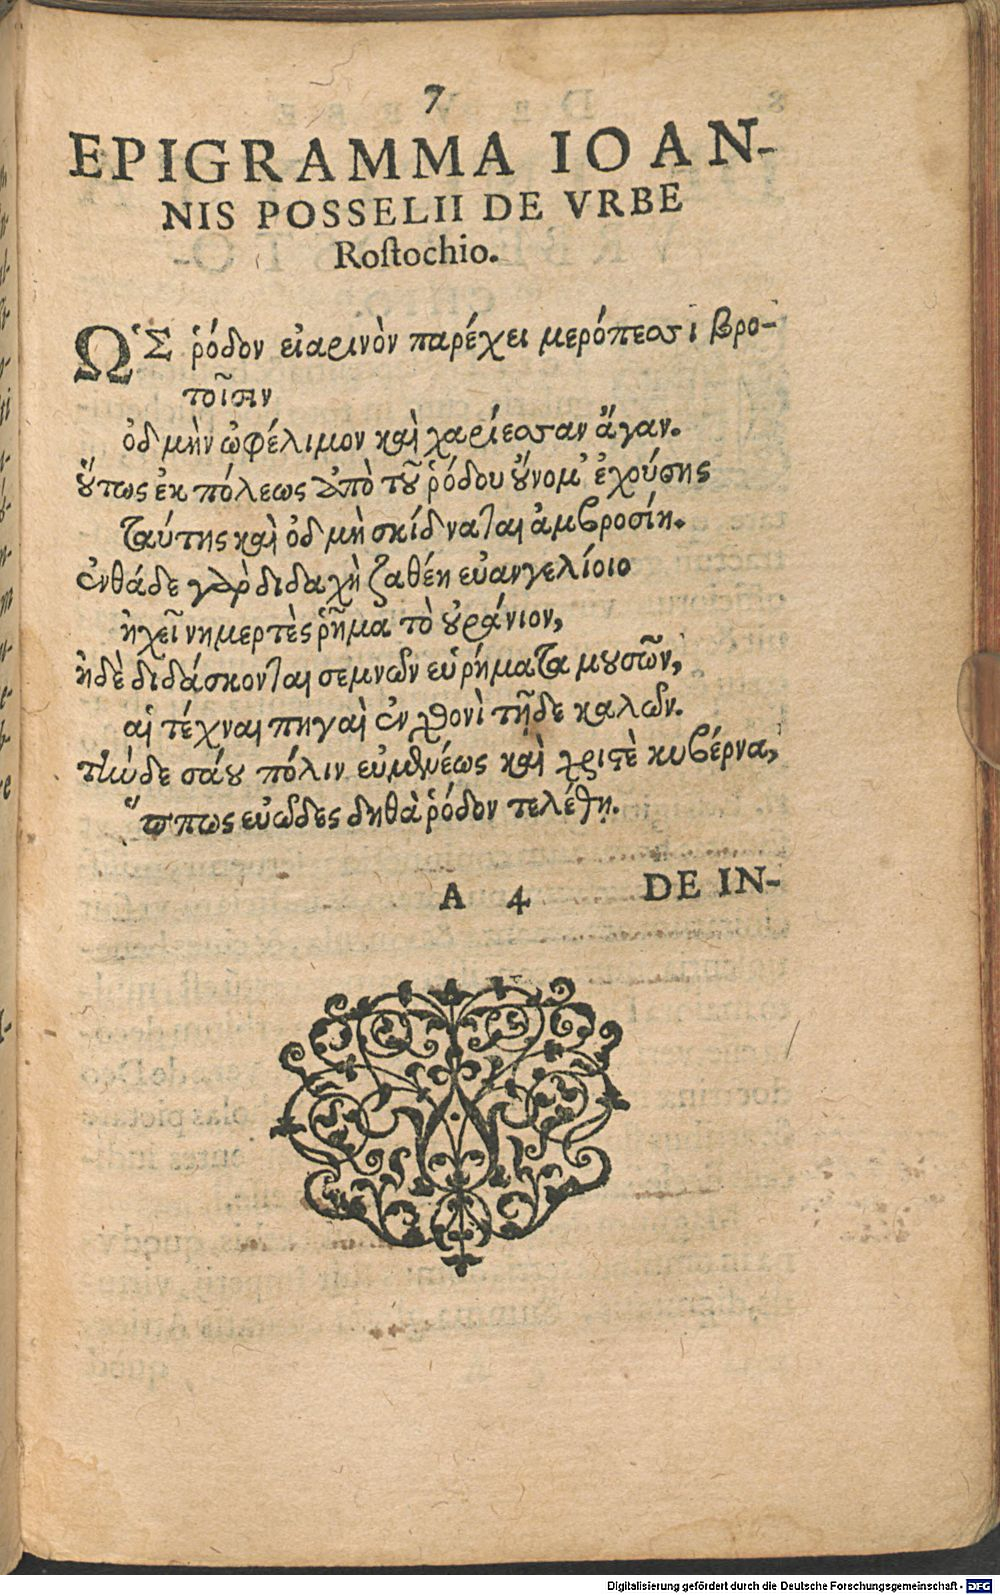 7
EPIGRAMMA IOAN-
NIS POSSELII DE VRBE
Roſtochio.
ὩΣ ῥόδον εἰαρινὸν παρέχει μερόπεσσι βρο-
τοῖσιν
ὀδμὴν ὠφέλιμον καὶ χαρίεσσαν ἄγαν.
οὕτως ἐκ πόλεως ἀπὸ τοῦ ῥόδου οὔνομ᾽ ἐχούσης
ταύτης καὶ ὀδμὴ σκίδναται ἀμβροσίη.
ἐνθάδε γὰρ διδαχὴ ζαθέη εὐανγελίοιο
ἠχεῖ νημερτὲς ῥῆμα τὸ οὐράνιον,
ἠδὲ διδάσκονται σεμνῶν εὑρήματα μουσῶν,
αἱ τέχναι πηγαὶ ἐν χθονὶ τῇδε καλῶν.
τὴνδε σάου πόλιν εὐμενέως καὶ χριστὲ κυβέρνα,
ὅππως εὐῶδες δηθὰ ῥόδον τελέθῃ.
A 4 DE IN-
Digitalisierung gefördert durch die Deutsche Forschungsgemeinschaft - DFG